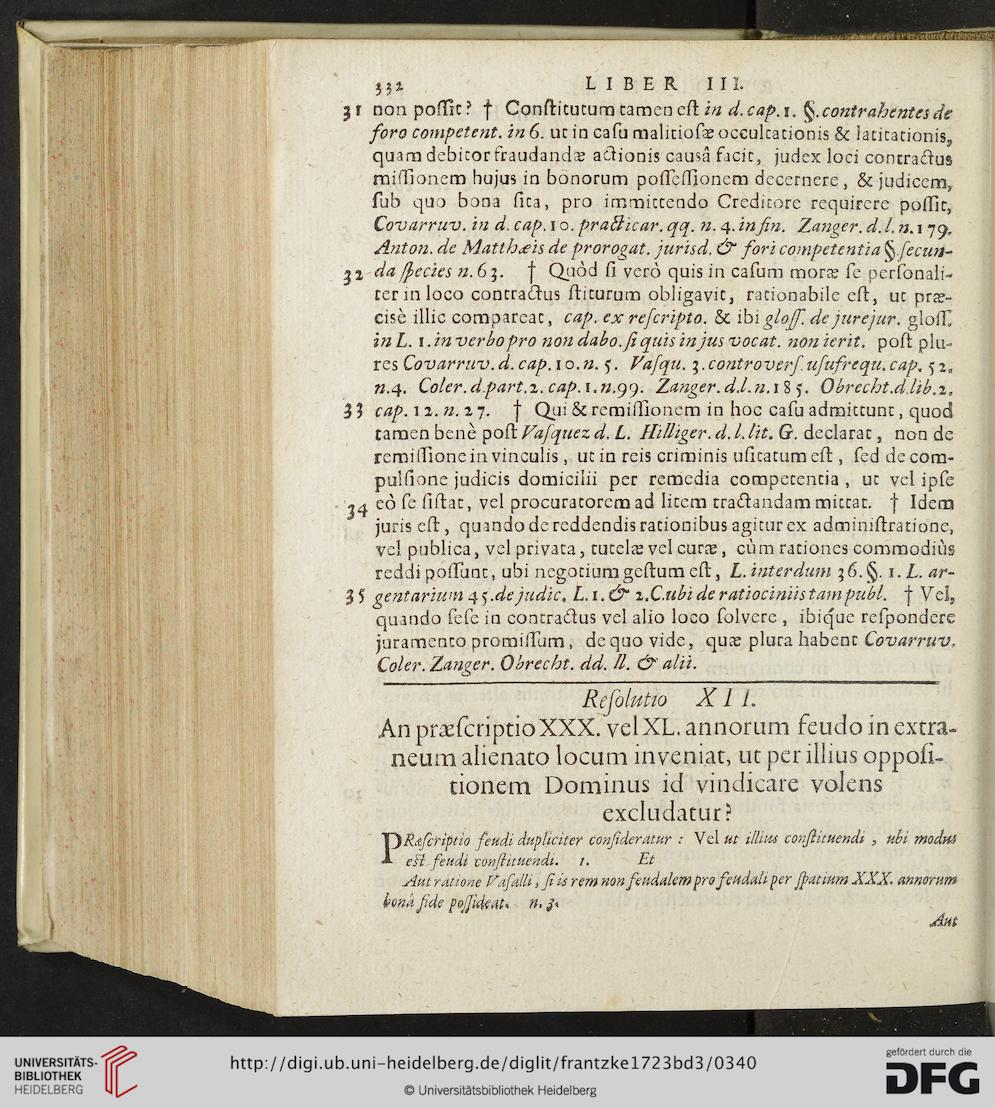 332 LIBER III.
31 non poſſit? † Conſtitutum tamen eſt in d. cap. 1. §. contrahentes de
foro competent. in 6. ut in caſu malitioſæ occultationis & latitationis,
quam debitor fraudandæ actionis causâ facit, judex loci contractus
miſſionem hujus in bonorum poſſeſſionem decernere, & judicem,
ſub quo bona ſita, pro immittendo Creditore requirere poſſit,
Covarruv. in d. cap. 10. practicar. qq. n. 4. in fin. Zanger. d. l. n. 179.
Anton. de Matthæis de prorogat. jurisd. & fori competentia §. ſecun-
32 da ſpecies n. 63. † Quòd ſi verò quis in caſum moræ ſe perſonali-
ter in loco contractus ſtiturum obligavit, rationabile eſt, ut præ-
cisè illic compareat, cap. ex reſcripto. & ibi gloſſ. de jurejur. gloſſ.
in L. 1. in verbo pro non dabo. ſi quis in jus vocat. non ierit. poſt plu-
res Covarruv. d. cap. 10. n. 5. Vaſqu. 3. controverſ. uſufrequ. cap. 52.
n. 4. Coler. d part. 2. cap. 1. n. 99. Zanger. d. l. n. 185. Obrecht. d. lib. 2.
33 cap. 12. n. 27. † Qui & remiſſionem in hoc caſu admittunt, quod
tamen benè poſt Vaſquez d. L. Hilliger. d. l. lit. G. declarat, non de
remiſſione in vinculis, ut in reis criminis uſitatum eſt, ſed de com-
pulſione judicis domicilii per remedia competentia, ut vel ipſe
34 eò ſe ſiſtat, vel procuratorem ad litem tractandam mittat. † Idem
juris eſt, quando de reddendis rationibus agitur ex adminiſtratione,
vel publica, vel privata, tutelæ vel curæ, cùm rationes commodiùs
reddi poſſunt, ubi negotium geſtum eſt, L. interdum 36. §. 1. L. ar-
35 gentarium 45. de judic. L. 1. & 2. C. ubi de ratiociniis tam publ. † Vel,
quando ſeſe in contractus vel alio loco ſolvere, ibiq́ue reſpondere
juramento promiſſum, de quo vide, quæ plura habent Covarruv.
Coler. Zanger. Obrecht. dd. ll. & alii.
Reſolutio XII.
An præſcriptio XXX. vel XL. annorum feudo in extra-
neum alienato locum inveniat, ut per illius oppoſi-
tionem Dominus id vindicare volens
excludatur?
PRæſcriptio feudi dupliciter conſideratur : Vel ut illius conſtituendi , ubi modus
eſt feudi conſtituendi. 1. Et
Aut ratione Vaſalli, ſi is rem non feudalem pro feudali per ſpatium XXX. annorum
bonâ fide poſſideat. n. 3.
Aut
UNIVERSITÄTS-
BIBLIOTHEK
HEIDELBERG
http://digi.ub.uni-heidelberg.de/diglit/frantzke1723bd3/0340
© Universitätsbibliothek Heidelberg
gefördert durch die
DFG